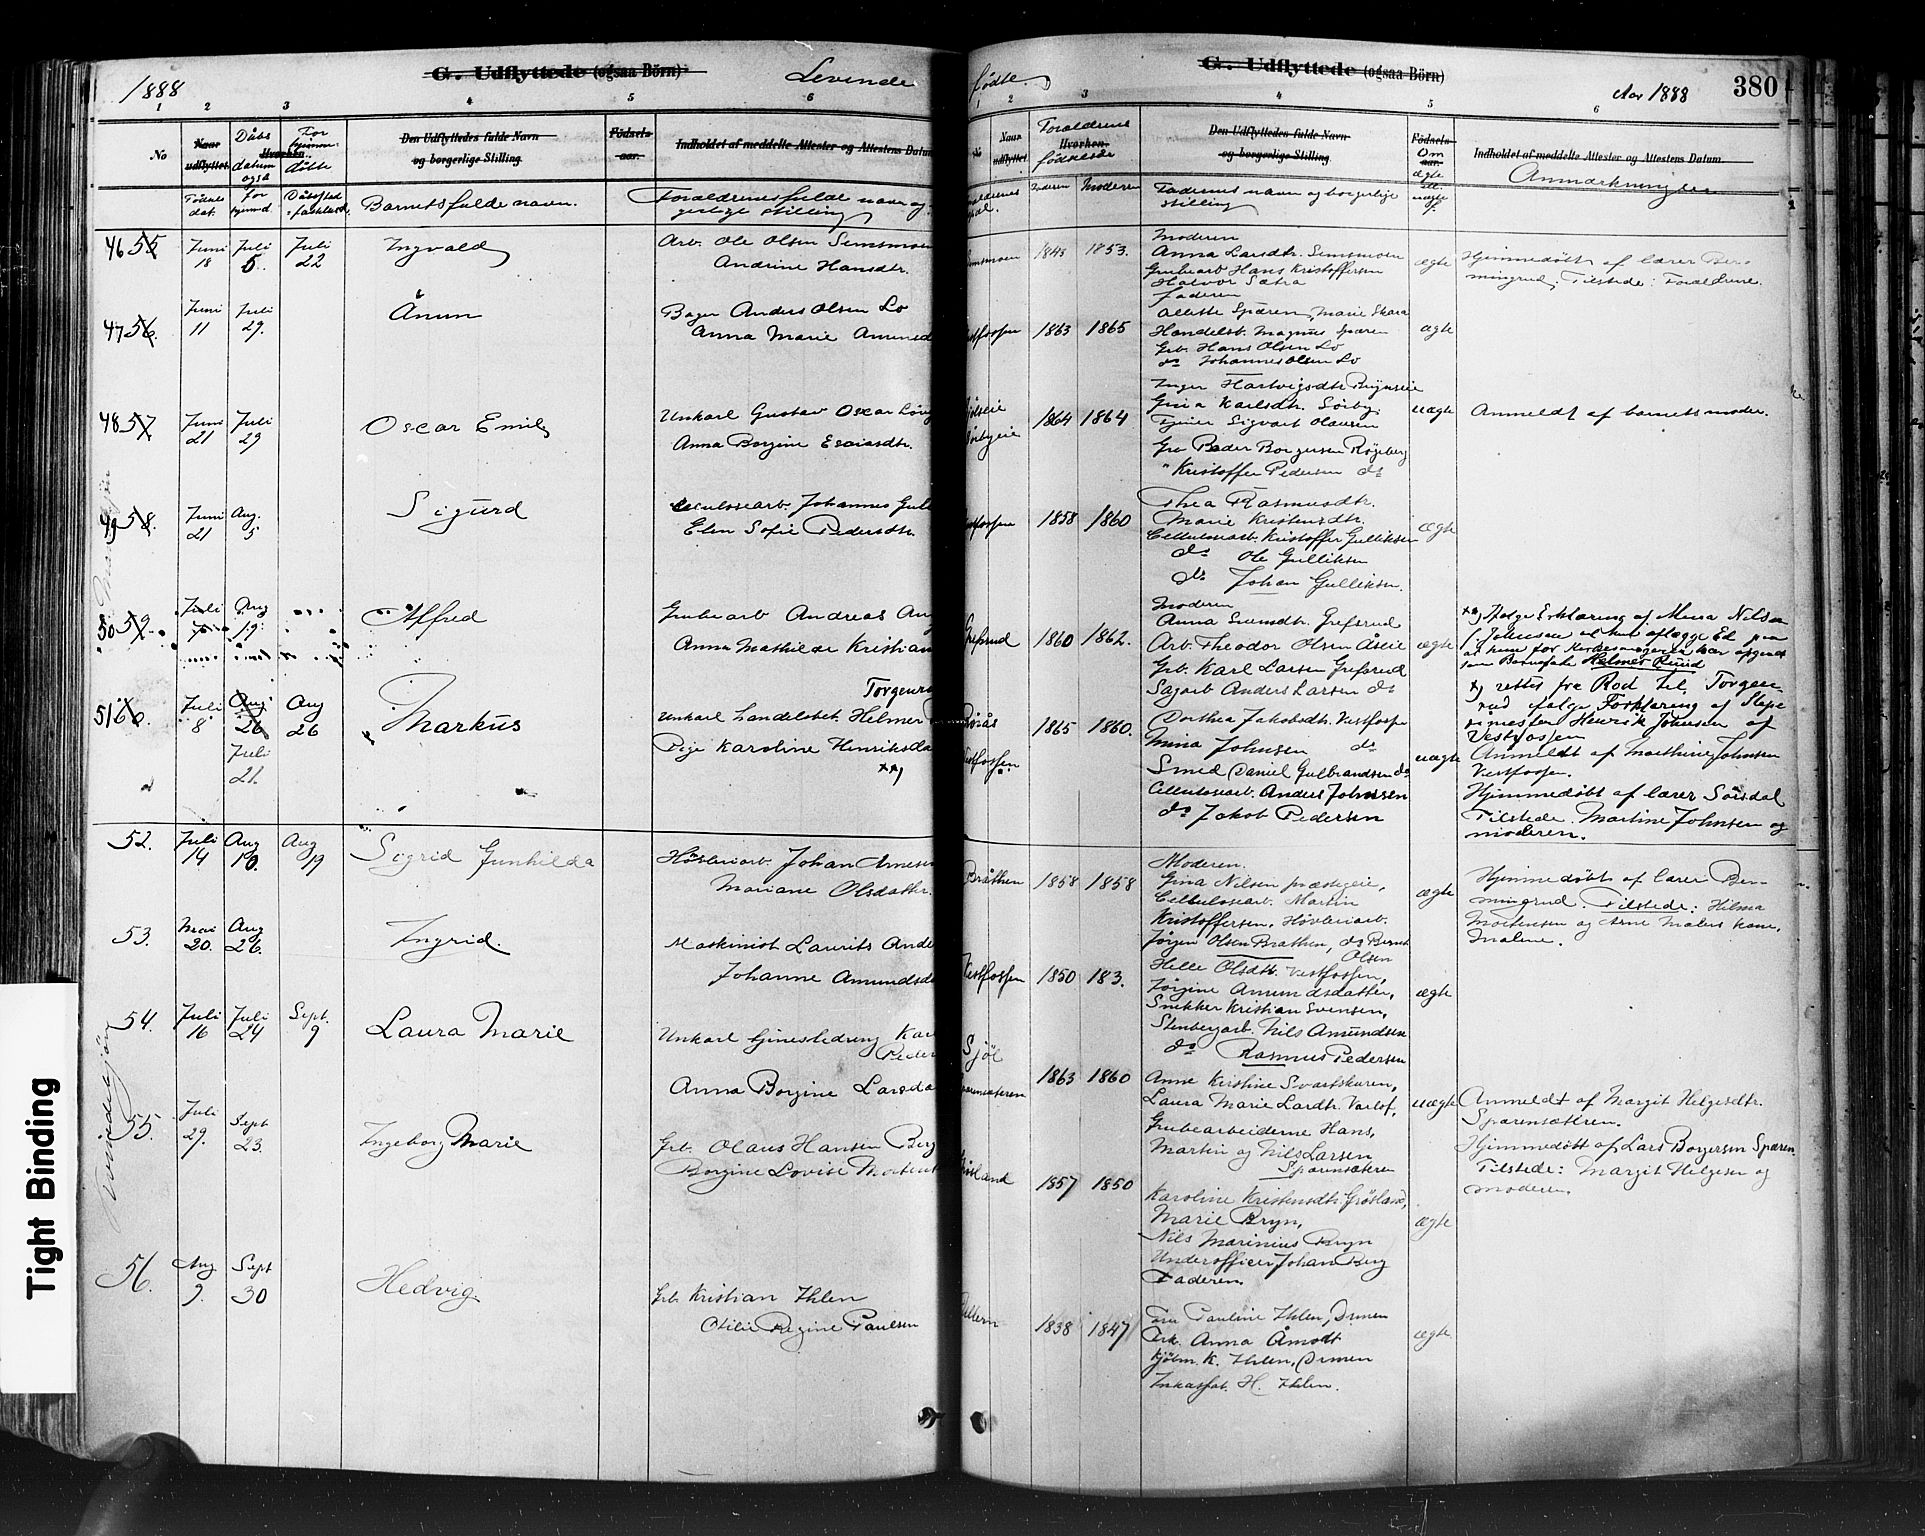 1888
G. Udflyttede (ogsaa Börn)
Levende
1 2 3 4 5 6
No
Naar udflyttet
Dåbs datum også
Hvorhen
For hjemmedöbte
Den Udflyttedes fulde Navn og borgerlige Stilling
Födselsaar.
Indholdet af meddelte Attester og Attestens Datum
Födselsdat.
for hjemd.
Barnets fulde navn.
Forældrenes fulde navn og
gerlige stilling
46 55 Juni 18 Juli 5. Juli 22 Ingvald
Arb. Ole Olsen Semsmoen
Andrine Hansdtr.
47 56. Juni 11 Juli 29. Ånun
Bager Anders Olsen Lo
Anna Marie Amund
48 57 Juni 21 Juli 29 Oscar Emil
Unkarl Gustav Oscar
Anna Borgine Esaiasdtr.
49 58. Juni 21 Aug. 5 Sigurd
Celulosearb. Johannes Gul
Elen Sofie Pedersdtr.
50 59. Juli Aug 19. Alfred
Grubearb Andreas An
Anna Mathilde Kristian
51 60. Juli 8 Aug 26 Juli 21. Aug 26 Markus
Torgeru
Unkarl Handelsbet. Helmer
Pige Karoline Henriksda
xx)
52. Juli 14 Aug 10. Aug 19 Sigrid Gunhilda
Høvleriarb. Johan Arnesen
Mariane Olsdatter.
53. Mai 20. Aug 26. Ingrid.
Maskinist Laurits Ande
Johanne Amundsda
54. Juli 16 Juli 24 Sept. 9 Laura Marie
Unkarl Karl
Peder
Anna Borgine Larsda
55. Juli 29. Sept 23. Ingeborg Marie
Grb. Olaus Hansen Berg
Borgine Lovise Mortens
56. Aug 9. Sept 30 Hedvig.
Grb. Kristian Ihlen
Otilie Regine Paulsen
Tight Binding
födte
G. Udflyttede (ogsaa Börn)
Aar 1888
380
1 2 3 4 5 6
Naar udflyttet
Forældrenes
Hvorhen
födselsår
Den Udflyttedes fulde Navn
og borgerlige Stilling
Födselsaar.
Om ægte ell. uægte f.
Indholdet af meddelte Attester og Attestens Datum
Anmærkninger
Faderen Moderen
Faddernes navn og borgelige
stilling
Semsmoen 1843 1853. ægte
Moderen
Anna Larsdtr. Semsmoen
Grubearb Hans Kristoffersen
Halvor Sætra
Faderen
Hjemmedöbt af lærer Ber-
mingrud. Tilstede: Forældrene.
Vestfossen 1863 1865 ægte
Alette Spæren, Marie Skara
Handelsb. Magnus Spæren
Grb. Hans Olsen Lo
do Johannes Olsen Lo
1864 1864 uægte
Inger Hartvigsdtr.
Gina Karlsdtr. Sörby.
Tjener Sigvart Olausen
Gra Peder Borgersen Røgeberg
" Kristoffer Pedersen do
Anmeldt af barnets moder.
Vestfossen 1858 1860 ægte
Thea Rasmusdtr.
Marie Kristensdtr.
Cellulosearb. Kristoffer Gulliksen
do Ole Gulliksen
do Johan Gulliksen.
Grefsrud 1860 1862. ægte
Moderen
Anna Svensdtr. Grefsrud
Arb. Theodor Olsen Åseie
Grb. Karl Larsen Grefsrud
Sagarb Anders Larsen do
xx) Ifølge Erklæring af Mina Nilsen
f. Johnsen vil hun aflægge Ed paa
at hun for Kirkesangeren har opgivet
som Barnefader Helmer Ruud
x) rettes fra Rod til Torgeru-
rud ifølge Forklaring af Slipe-
rimester Henrik Johnsen af
Vestfossen
Vestfossen 1865 1860. uægte
Dorthea Jakobsdtr. Vestfossen
Mina Johnsen do
Smed Daniel Gulbrandsen do
Cellulosearb. Anders Johnsen
do Jakob Pedersen
Anmeldt af Marthine Johnsen
Vestfossen.
Hjemmedöbt af lærer Sörsdal
Tilstede. Martine Johnsen og
moderen.
Bråthen 1858 1858 ægte
Moderen.
Gina Nilsen præstegeie,
Cellulosearb. Martin
Kristoffersen, Høvleriarb.
Jörgen Olsen Bråthen, do Bernt
Olsen
Hjemmedöbt af lærer Ber-
mingrud Tilstede: Hilma
Mortensen og Arne Malers kone,
Malene.
Vestfossen 1850 183. ægte
Helle Olsdtr. Vestfossen,
Jörgine Amundsdatter,
Snekker Kristian Svensen,
Stenbergarb. Nils Amundsen
do Rasmus Pedersen
Sjöl
Sparensæteren 1863 1860 uægte
Anne Kirstine Svartskuren,
Laura Marie Larsdtr. Varlof,
Grubearbeiderne Hans,
Martin og Nils Larsen
Sparensæteren
Anmeldt af Margit Helgesdtr.
Sparensætren.
Hjemmedöbt af Lars Borgersen Spæren
Tilstede: Margit Helgesen og
moderen.
Grösland 1857 1850 ægte
Karoline Kristensdtr. Grösland,
Marie Bryn,
Nils Marinius Bryn
Underofficer Johan Berg
Faderen.
1838 1847 ægte
Fru Pauline Ihlen, Drmen
Frk. Anna Åmodt
Kjöbm. K. Ihlen, Drmen
Inkassat. H. Ihlen.